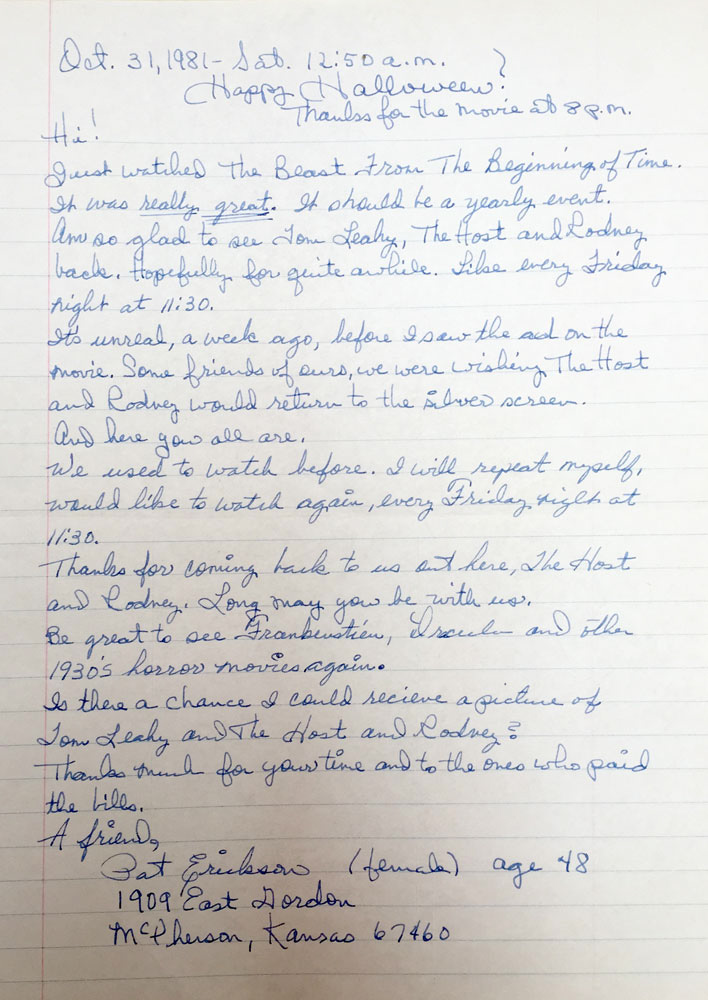 Oct. 31, 1981 - Sat. 12:50 a.m.
Happy Halloween!
Thanks for the movie at 8 p.m.
Hi!
Just watched The Beast From The Beginning of Time.
It was really great. It should be a yearly event.
Am so glad to see Tom Leahy, The Host and Rodney
back. Hopefully for quite awhile. Like every Friday
night at 11:30.
It's unreal, a week ago, before I saw the ad on the
movie. Some friends of ours, we were wishing The Host
and Rodney would return to the silver screen.
And here you all are.
We used to watch before. I will repeat myself,
would like to watch again, every Friday night at
11:30.
Thanks for coming back to us out here, The Host
and Rodney. Long may you be with us.
Be great to see Frankenstien, Dracula and other
1930's horror movies again.
Is there a chance I could recieve a picture of
Tom Leahy and The Host and Rodney?
Thanks much for your time and to the ones who paid
the bills.
A friend,
Pat Erickson (female) age 48
1909 East Gordon
McPherson, Kansas 67460